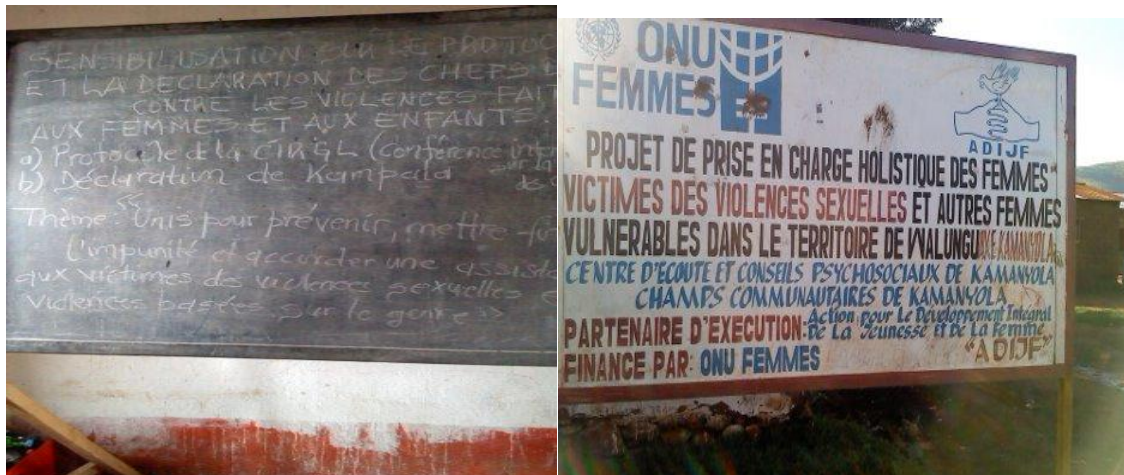 SENSIBILISATION SUR LE PROTOC
ET LA DECLARATION DES CHEFS
CONTRE LES VIOLENCES FAIT
AUX FEMMES ET AUX ENFANTS
a) Protocole de la CIRGL (Conférence
b) Déclaration de Kampala
Thème: "Unis pour prévenir, mettre
l'impunité et accorder une assist
aux victimes de violences sexuelles e
violences basées sur le genre"
ONU
FEMMES
ADIJF
PROJET DE PRISE EN CHARGE HOLISTIQUE DES FEMMES
VICTIMES DES VIOLENCES SEXUELLES ET AUTRES FEMMES
VULNERABLES DANS LE TERRITOIRE DE WALUNGU AXE KAMANYOLA
CENTRE D'ECOUTE ET CONSEILS PSYCHOSOCIAUX DE KAMANYOLA
CHAMPS COMMUNAUTAIRES DE KAMANYOLA
PARTENAIRE D'EXECUTION: Action pour Le Développement Intégral
De La Jeunesse Et De La Femme
"ADIJF"
FINANCE PAR: ONU FEMMES